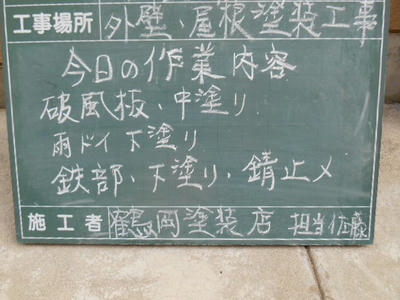 工事場所 外壁、屋根塗装工事
今日の作業内容
破風板、中塗り
雨ドイ下塗り
鉄部、下塗り、錆止メ
施工者 鶴岡塗装店 担当佐藤